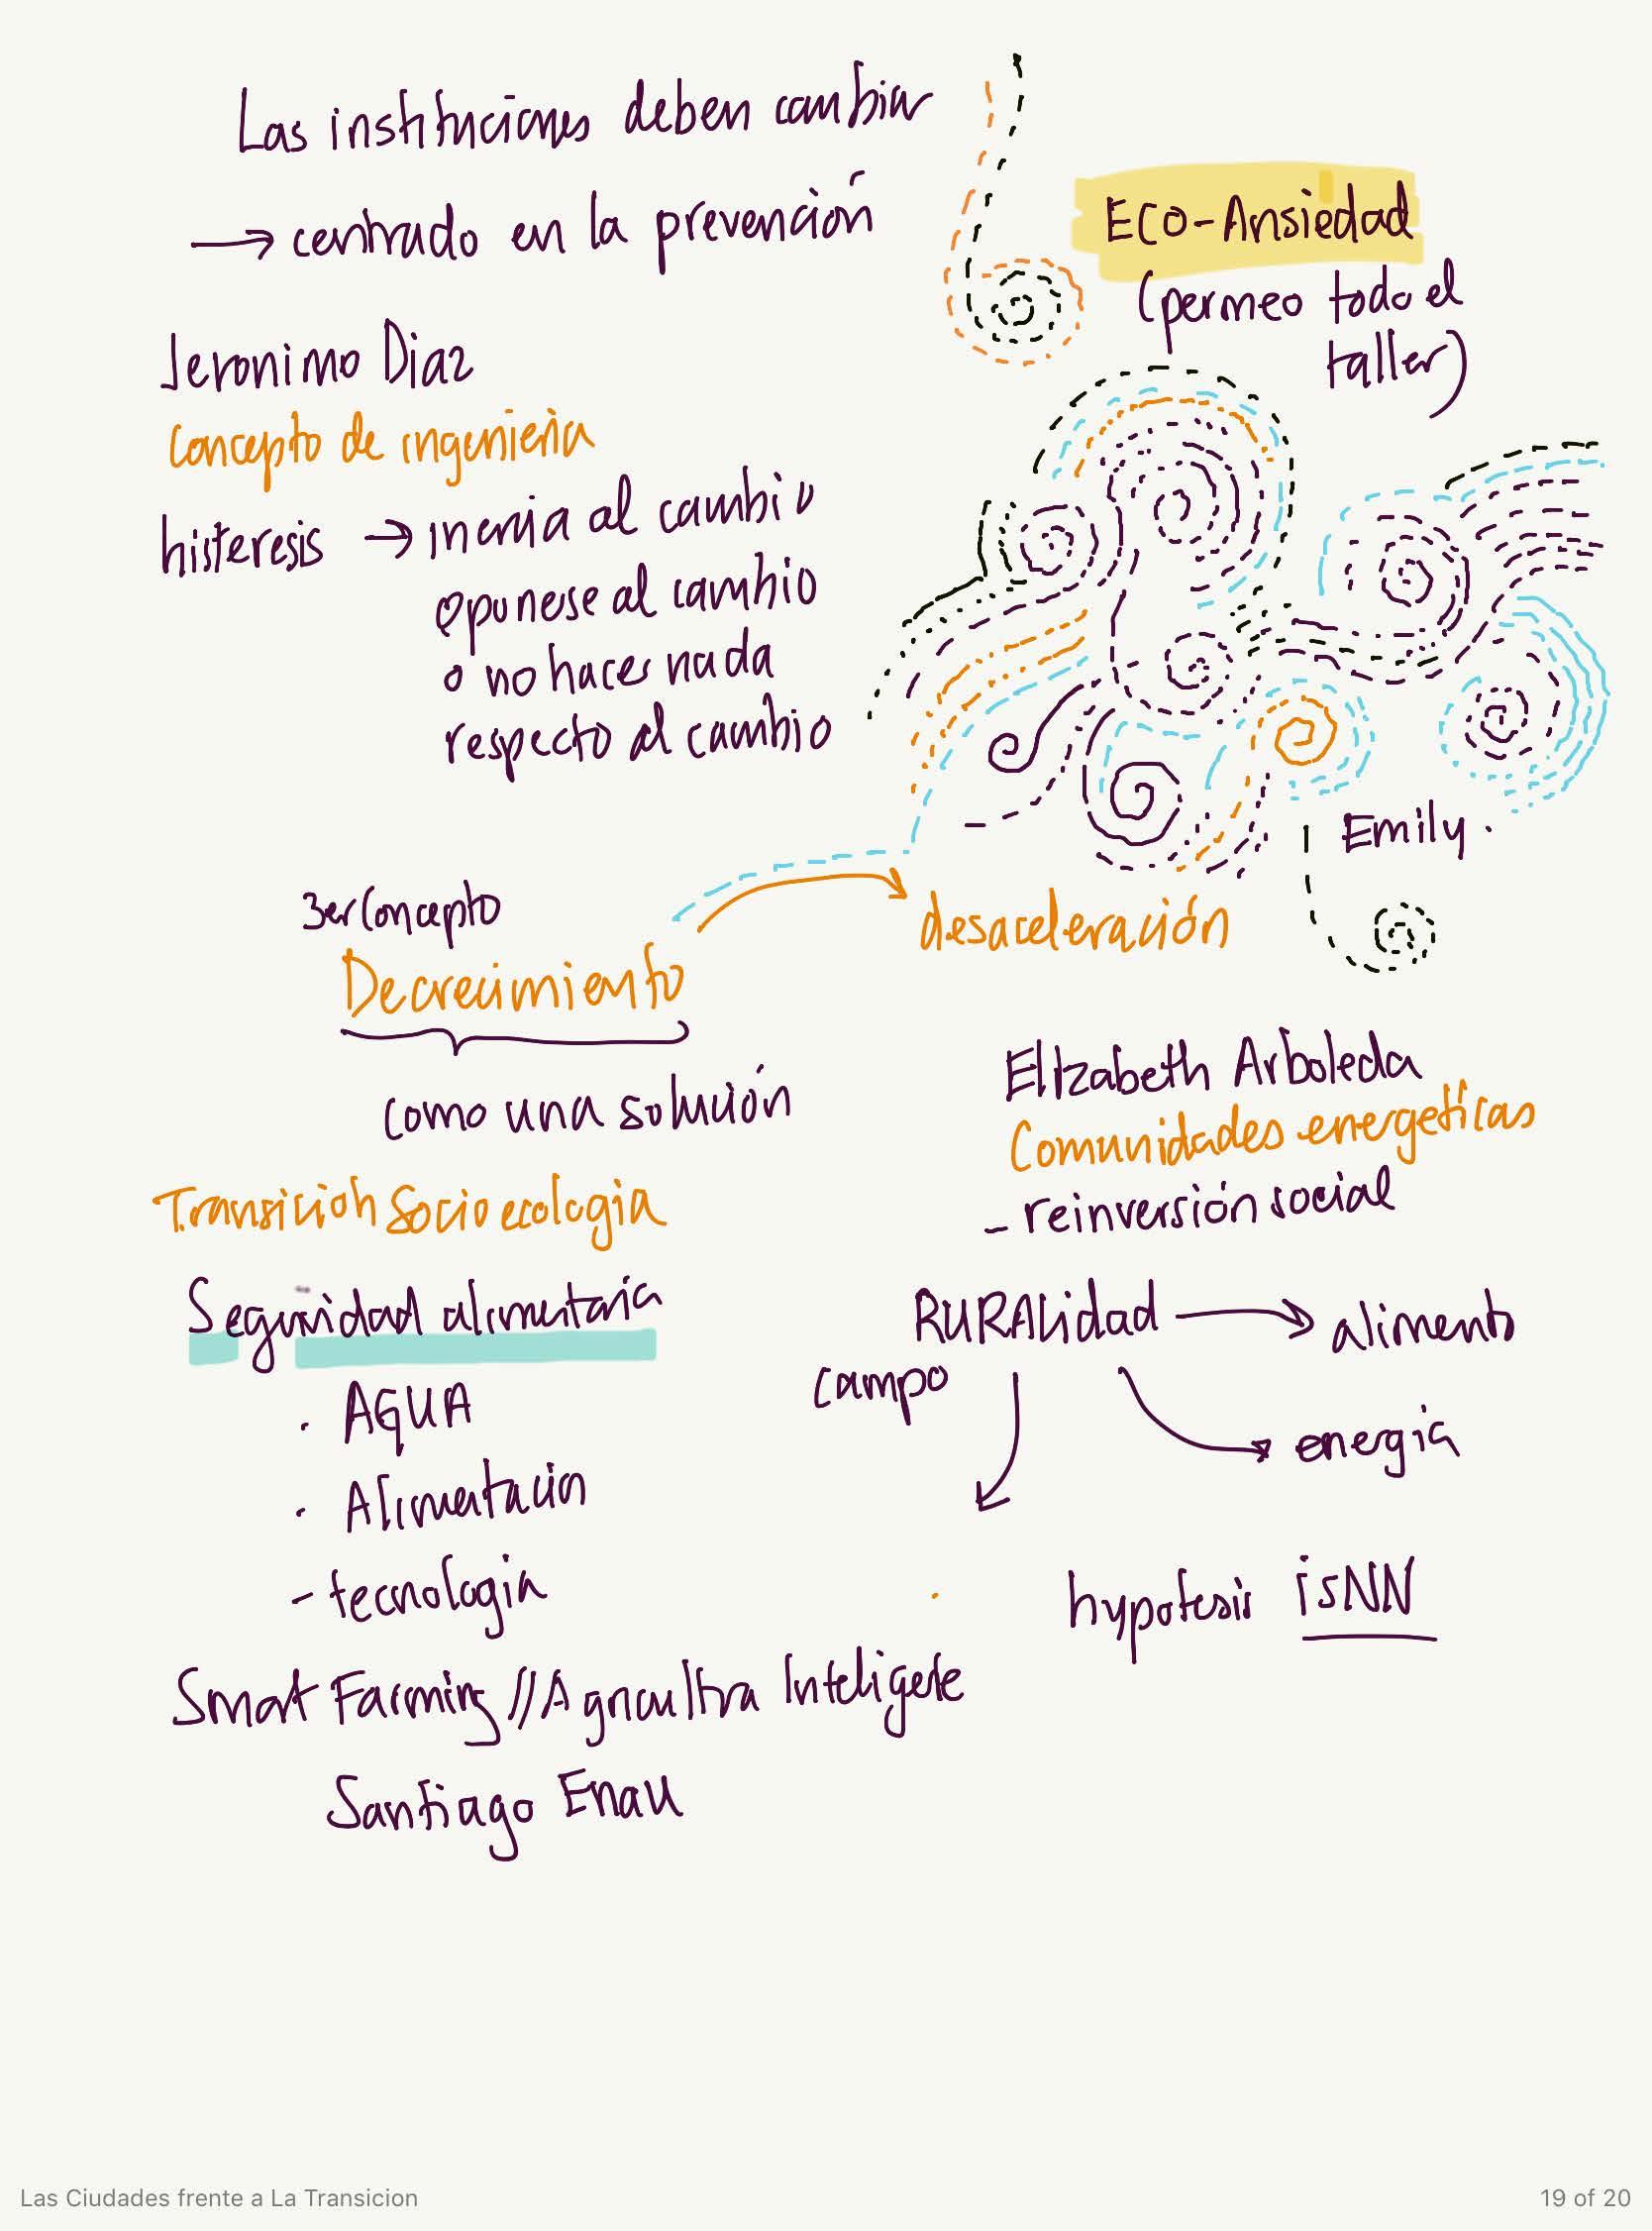 Las instituciones deben cambiar
→ centrado en la prevención
ECO-Ansiedad
(permeo todo el
taller)
Jeronimo Diaz
Concepto de ingenieria
histeresis → inercia al cambio
oponerse al cambio
o no hacer nada
respecto al cambio
Emily.
3er Concepto
Decrecimiento
desaceleración
como una solución
Elizabeth Arboleda
Comunidades energéticas
- reinversión social
Transición Socio ecologia
Seguridad alimentaria
· AGUA
· Alimentación
- tecnologia
RURALidad → alimento
campo
energia
hypotesis isNN
Smart Farming // Agricultura Inteligente
Santiago Enau
Las Ciudades frente a La Transicion
19 of 20